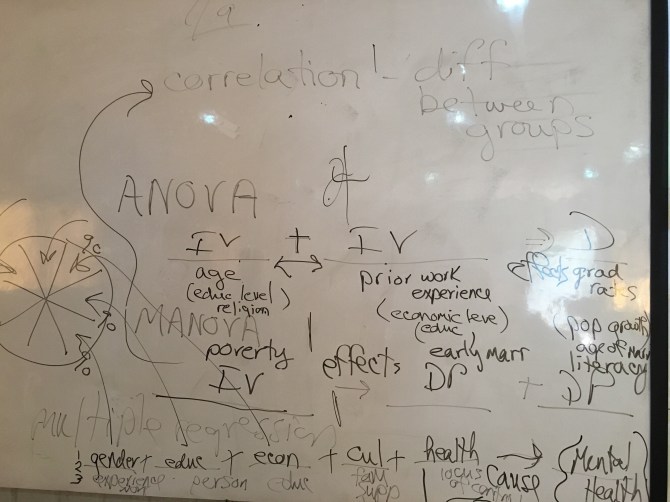 correlation - diff
between
groups
ANOVA
IV + IV ⇒ D
age prior work effects grad
(educ level experience rates
religion) (economic level)
MANOVA (educ (pop growth
poverty early marr age of marr
effects literacy
IV → DP + DP
multiple regression
% % %
1 gender + educ + econ + cul + health → {Mental
2 experience person educ fam locus cause Health
3 supp of control